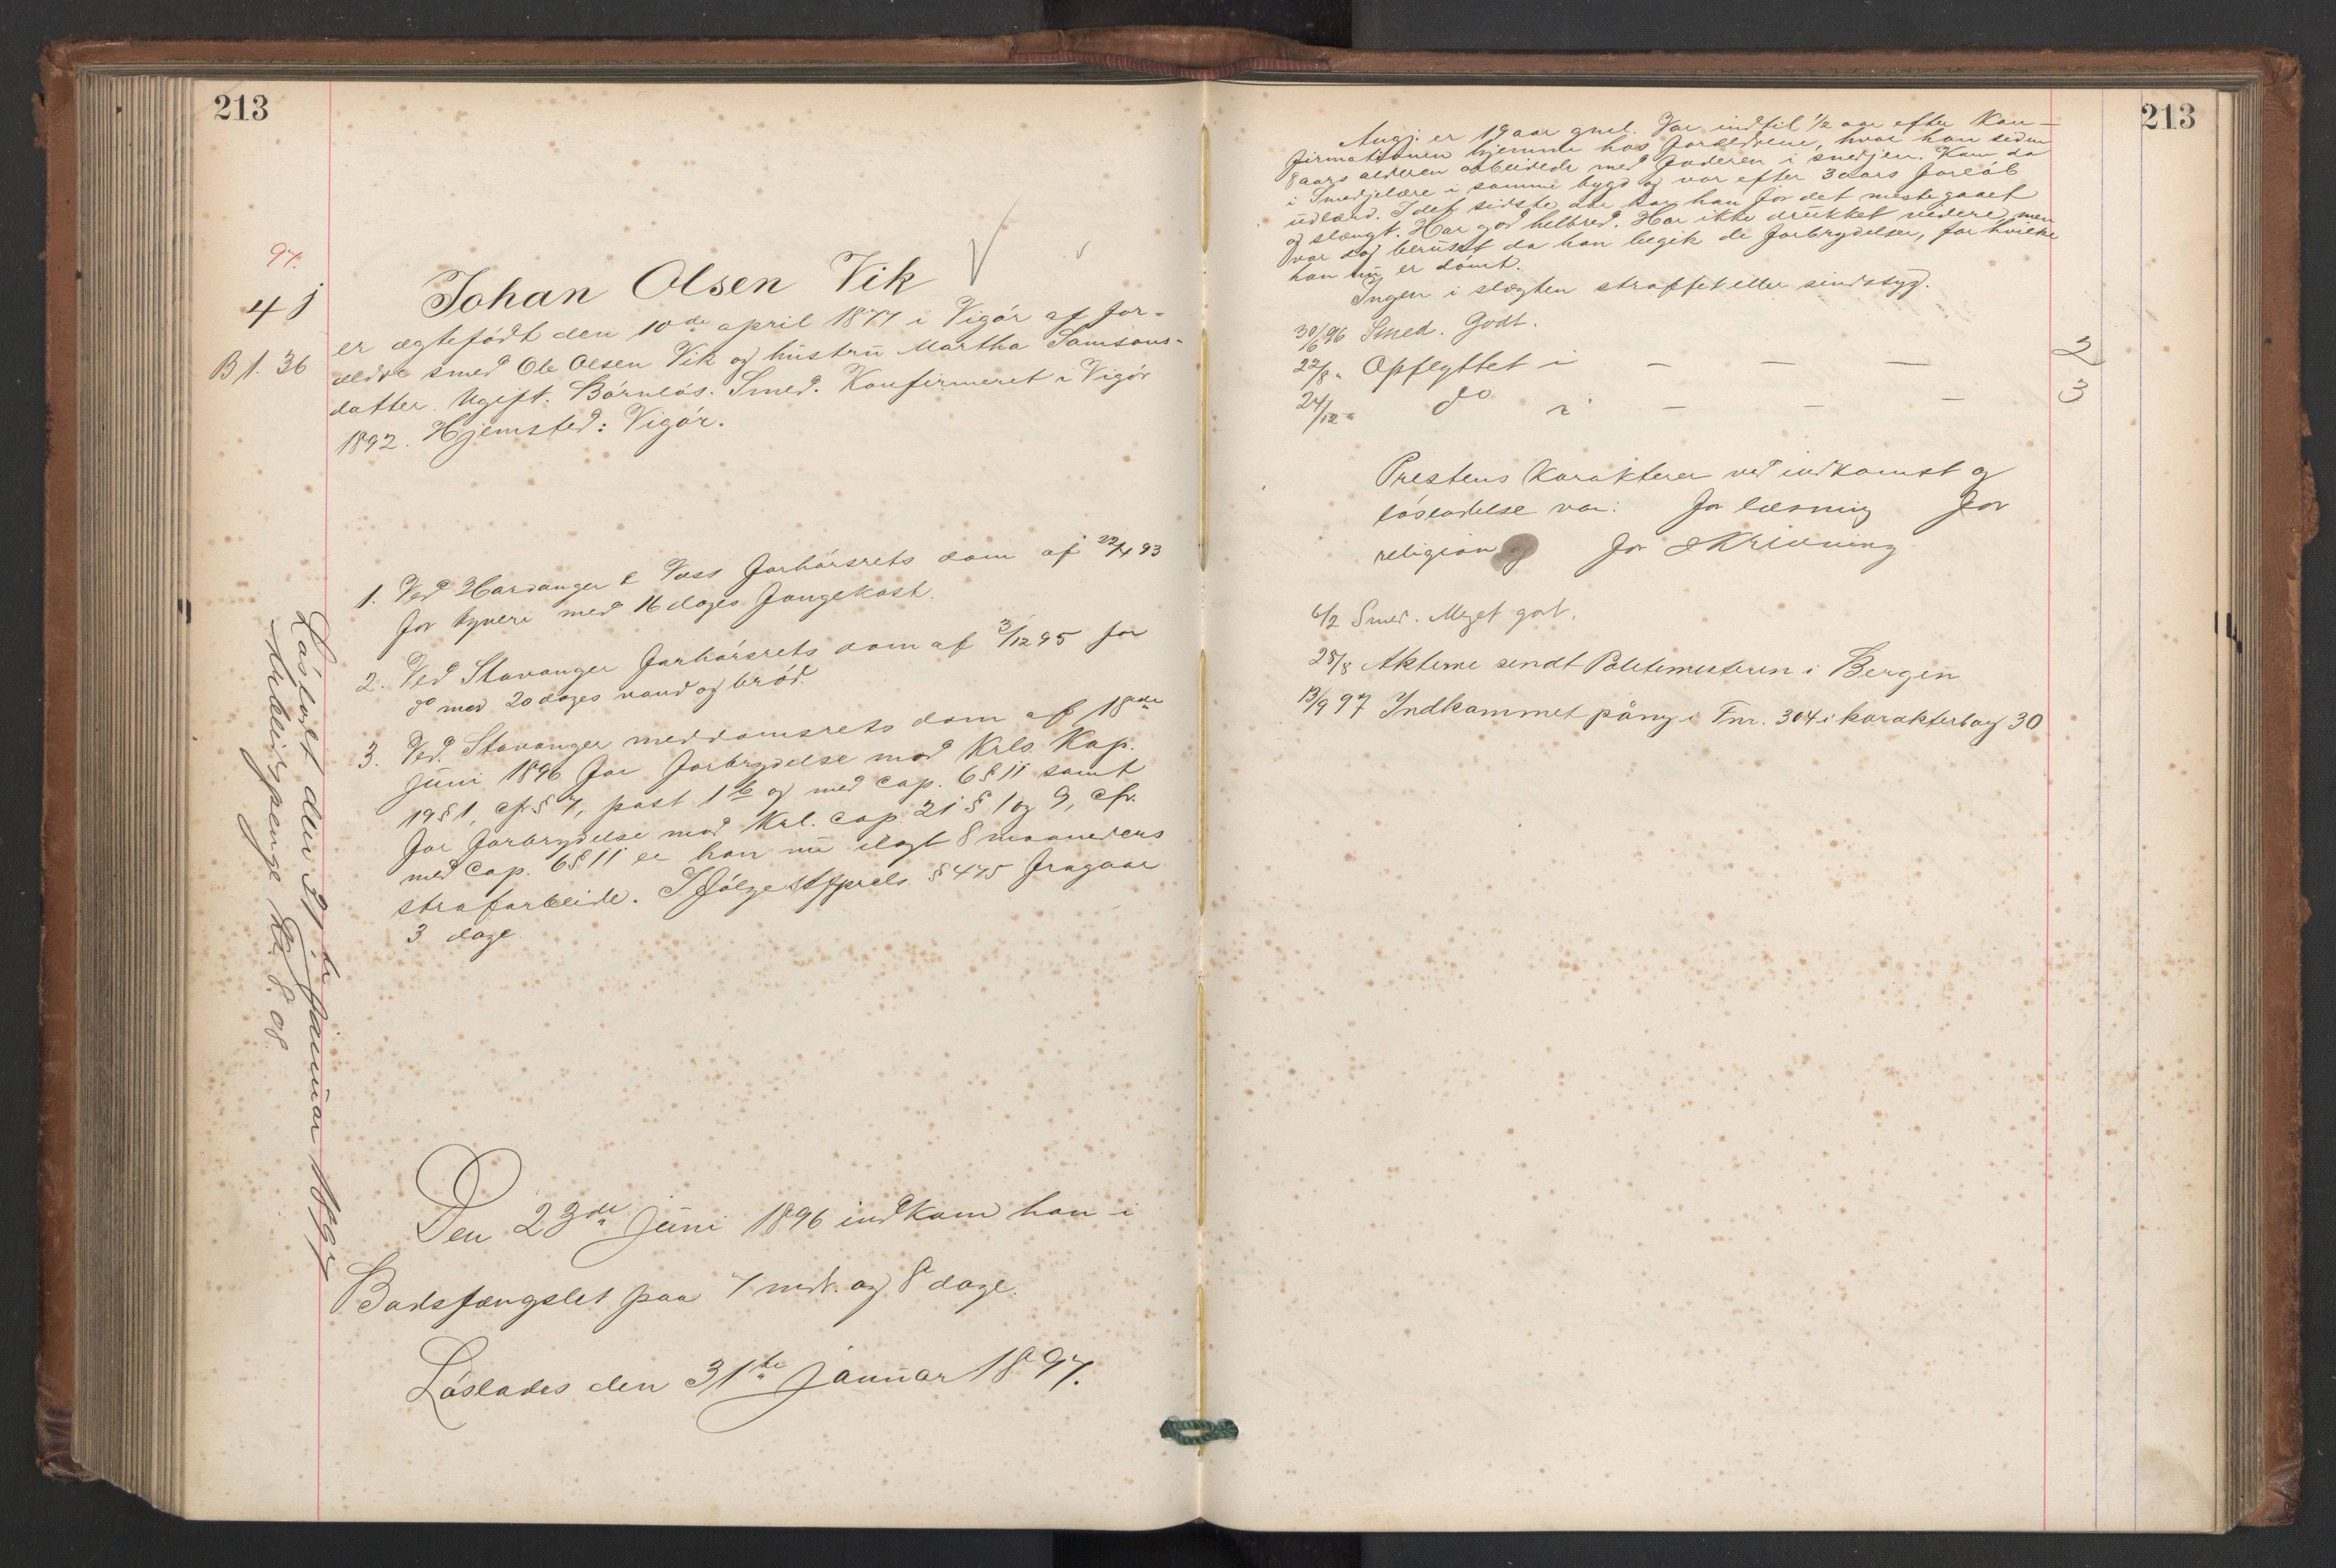 213
97.
4 j
B 1. 36
Johan Olsen Vik
er ægtefödt den 10de april 1877 i Vigör af for-
ældre smed Ole Olsen Vik og hüstrü Martha Samsons-
datter. Ugift. Börnlös. Smed. Konfirmeret i Vigör
1892. Hjemsted: Vigör.
1. Ved Hardanger & Voss Forhörsrets dom af 22/4 93
for tyveri med 16 dages Fangekost.
2. Ved Stavanger Forhörsrets dom af 3/12 95 for
do med 20 dages vand og bröd.
3. Ved Stavanger meddomsrets dom af 18de
Jüni 1896 for Forbrydelse mod Krls. Kap.
19 § 1, cf. § 7, post 1 b og med cap. 6 § 11 samt
for Forbrydelse mod Krl. cap. 21 § 1 og 9, cfr.
med Cap. 6 § 11 er han nü ilagt 8 maaneders
strafarbeide. Ifölge Stfprcls. § 475 fragaar
3 dage.
Den 23de Jüni 1896 indkom han i
Bodsfængslet paa 7 mdr. og 8 dage.
Löslades den 31te Janüar 1897.
Lösladt den 31te Janüar 1897
Arbeidspenge Kr. 8.08
213
Angj. er 19 aar gml. Var indtil 1/2 aar efter Kon-
firmationen hjemme hos Forældrene, hvor han siden
8 aars alderen arbeidede med Faderen i smedjen. Kom da
i Smedjelære i samme bygd og var efter 3 aars Forlöb
üdlærd. I det sidste aar har han for det meste gaaet
og slængt. Har god helbred. Har ikke drükket videre, men
var dog berüset da han begik de Forbrydelser, for hvilke
han nü er dömt.
Ingen i slægten straffet eller sindssyg.
30/6 96 Smed. Godt.
22/8 " Opflyttet i — — — 2
24/12 " do i — — — 3
Prestens Karakterer ved indkomst og
lösladelse var: for læsning for
religion og for skrivning
6/2 Smed. Meget godt.
28/8 Akterne sendt Politimesteren i Bergen
13/9 97 Indkommet påny i Fnr. 304 i karakterbog 30